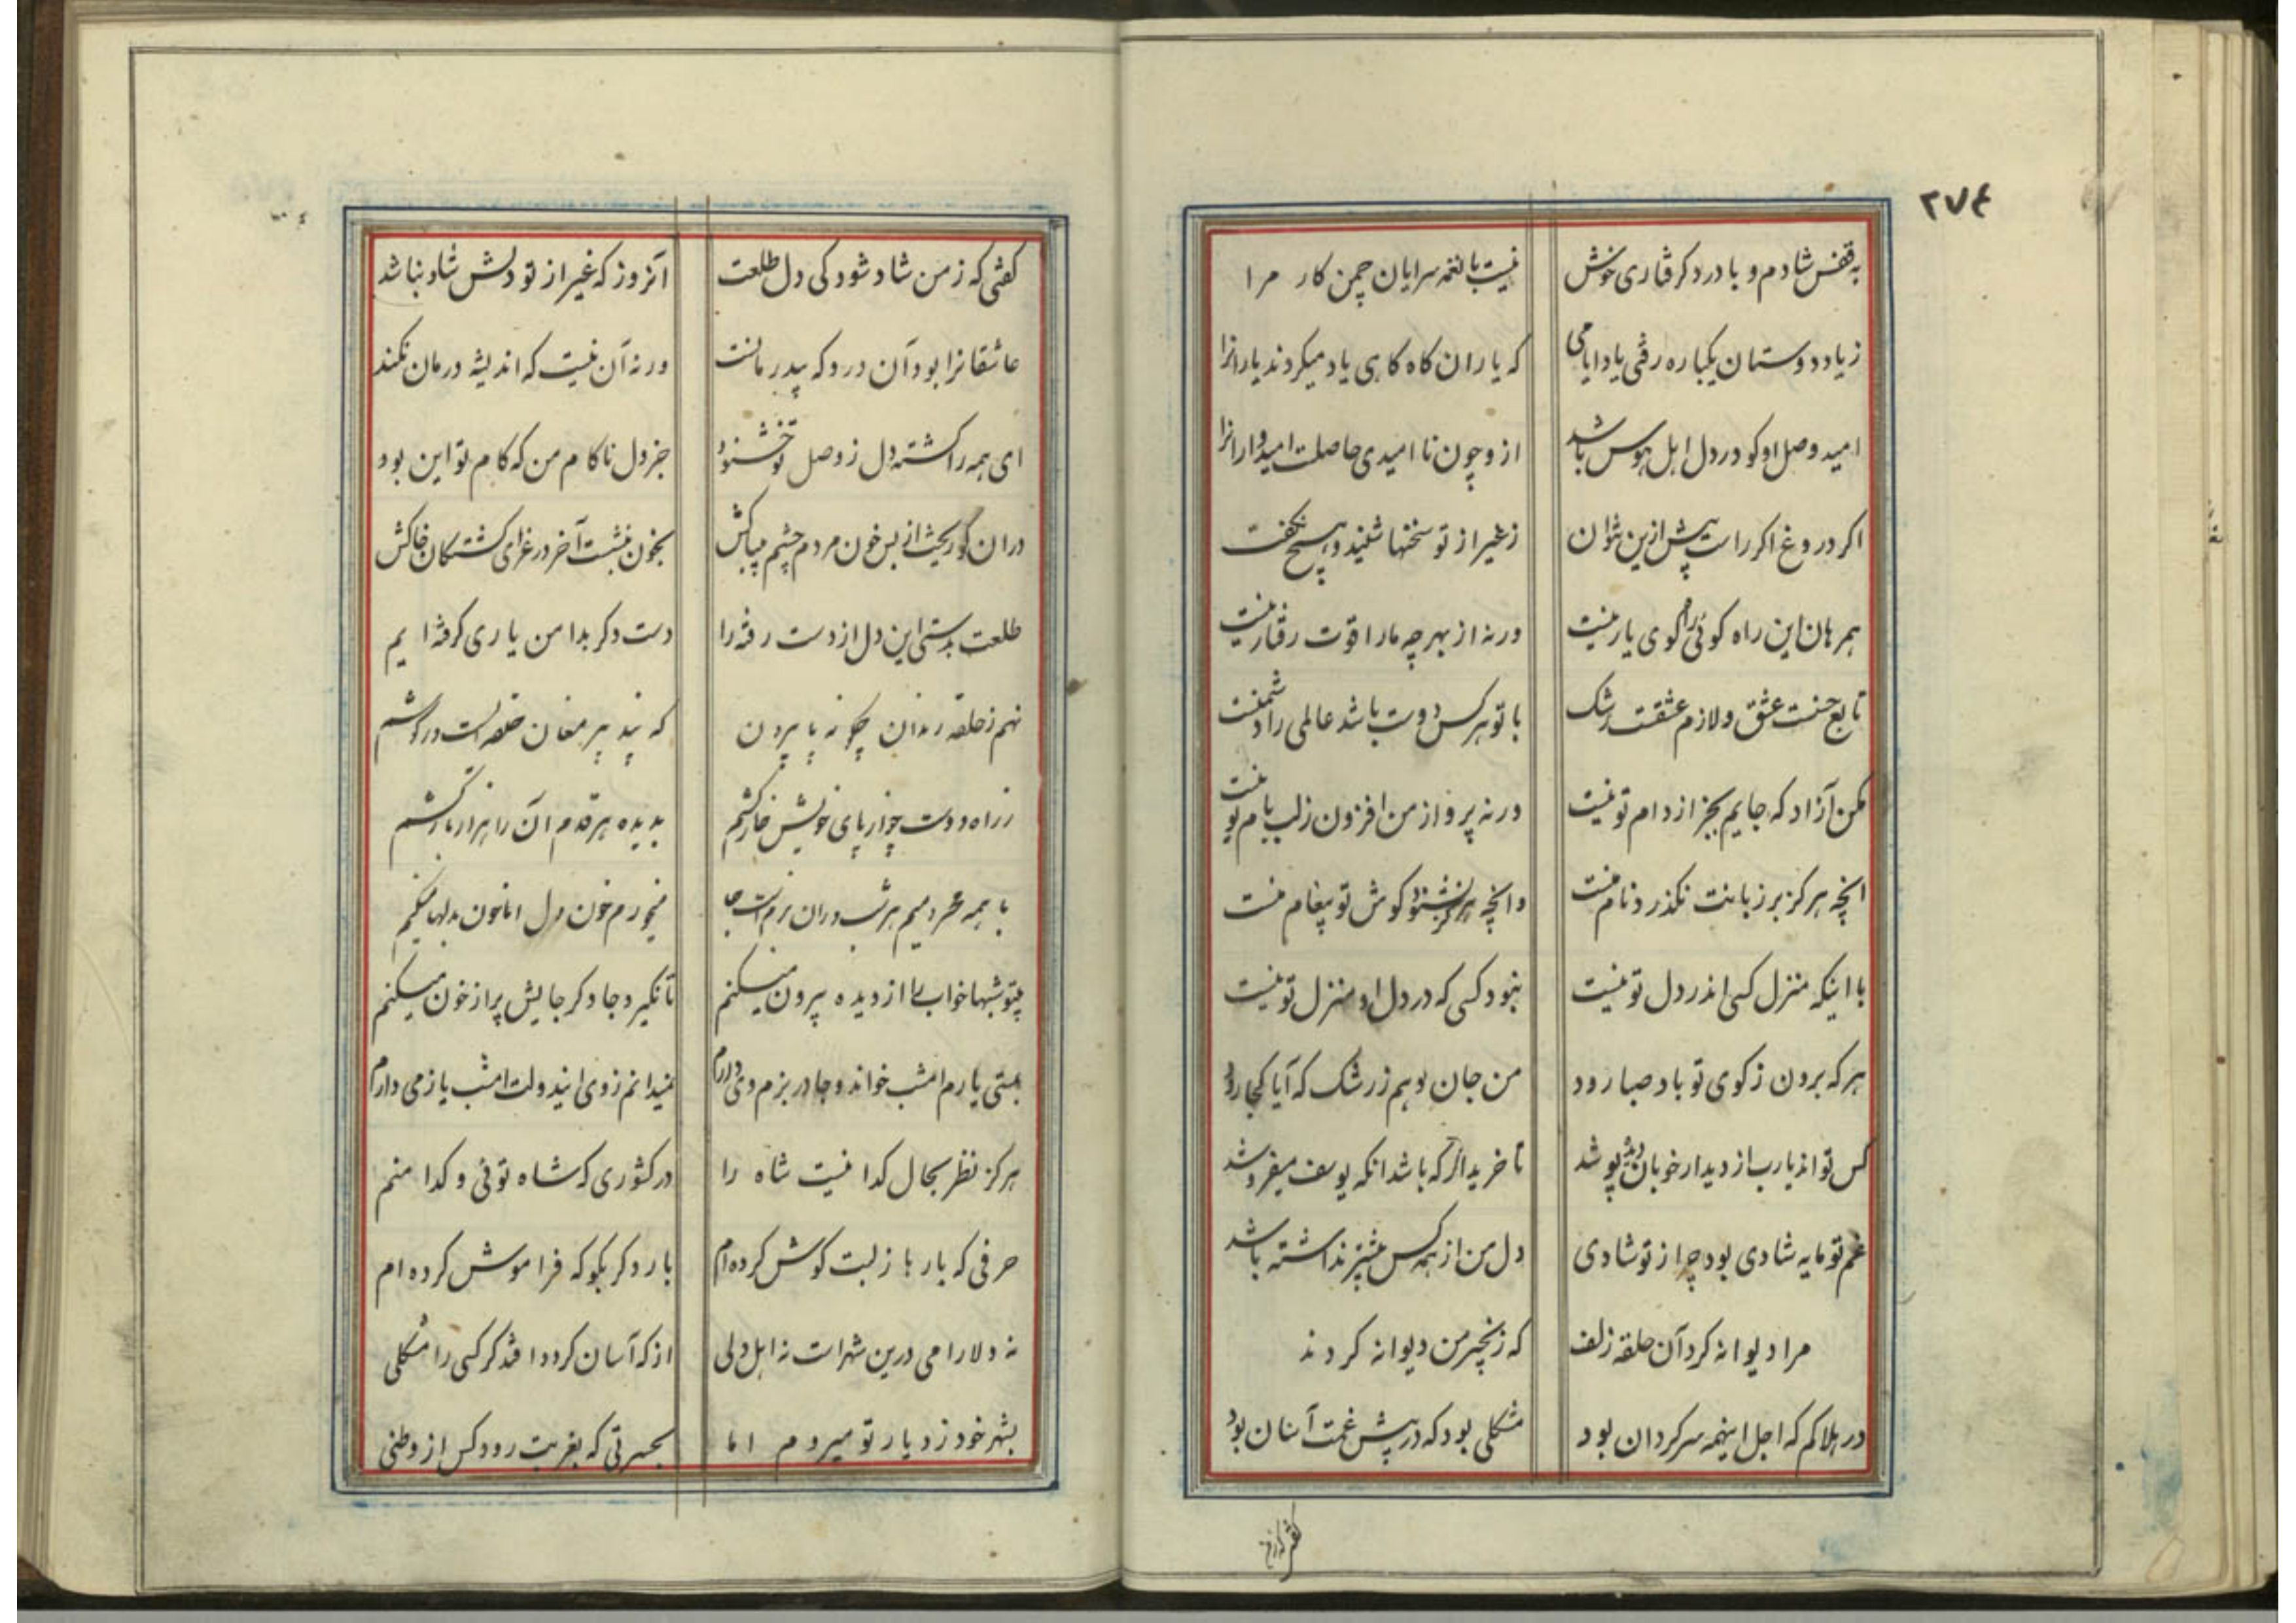 ۲۷۴
به قفس شادم و با درد کرفتاری خوش نیست با نغمه سرایان چمن کار مرا
ز یاد دوستان یکباره رفتی یاد ایامی که یاران کاه کاهی یاد میکردند یارانرا
امید وصل او کو در دل اهل هوس باشد ازو چون ناامیدی حاصلست امیدوارانرا
اکر دروغ اکر راست پیش ازین نتوان ز غیر از تو سخنها شنید و هیچ نکفت
همرهان این راه کوئی راه کوی یار نیست ورنه از بهر چه ما را قوت رفتار نیست
تابع حسنست عشق و لازم عشقست رشک با تو هر کس دوست باشد عالمی را دشمنست
مکن آزاد که جایم بجز از دام تو نیست ورنه پرواز من افزون ز لب بام تو نیست
انچه هرکز بر زبانت نکذرد نام منست وانچه هرکز نشنود کوش تو پیغام منست
با اینکه منزل کسی اندر دل تو نیست نبود کسی که در دل او منزل تو نیست
هر که برون ز کوی تو باد صبا رود من جان دهم ز رشک که آیا کجا رود
کس تواند یارب از دیدار خوبان دیده پوشد تا خریدار که باشد انکه یوسف میفروشد
غم تو مایه شادی بود چرا ز تو شادی دل من از همه کس بیشتر نداشته باشد
مرا دیوانه کرد آن حلقه زلف که زنجیر من دیوانه کردند
در هلاکم که اجل اینهمه سرکردان بود مشکلی بود که در پیش غمت آسان بود
کفتی که ز من شاد شود کی دل طلعت آنروز که غیر از تو دلش شاد نباشد
عاشقانرا بود آن درد که بیدرمانست ورنه آن نیست که اندیشه درمان نکند
ای همه را کشته دل ز وصل تو خشنود جز دل ناکام من که کام تو این بود
دران کو ریخت از بس خون مردم چشم بیباکش بخون بنشست آخر در عزای کشتکان خاکش
طلعت بدستی این دل از دست رفته را دست دکر بدامن یاری کرفته ایم
نهم ز حلقه رندان چکونه پا بیرون که پند پیر مغان حلقه ایست در کوشم
ز راه دوست چو از پای خویش خار کشم بدیده هر قدم آن را هزار بار کشم
با همه محرومیم هر شب دران بزم است جا میخورم خون دل اما خون بدلها میکنم
بیتو شبها خواب را از دیده بیرون میکنم تا نکیرد جا دکر جایش پر از خون میکنم
بمستی یارم امشب خواند و جا در بزم وی دارم نمیدانم ز وی ایندولت امشب یا ز می دارم
هرکز نظر بحال کدا نیست شاه را در کشوری که شاه توئی و کدا منم
حرفی که بارها ز لبت کوش کرده ام بار دکر بکو که فراموش کرده ام
نه دلارامی درین شهرست نه اهل دلی از که آسان کردد افتد کر کسی را مشکلی
بشهر خود ز دیار تو میروم اما بحسرتی که بغربت رود کس از وطنی